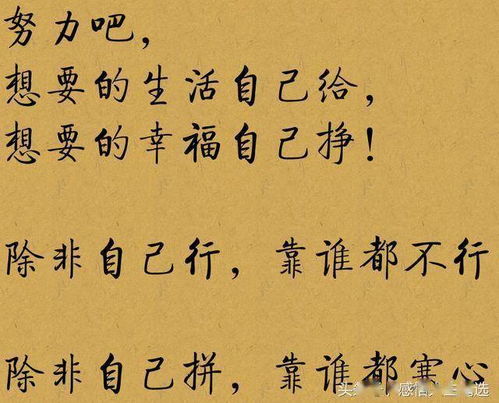 努力吧，
想要的生活自己给，
想要的幸福自己挣！
除非自己行，靠谁都不行
除非自己拼，靠谁都寒心